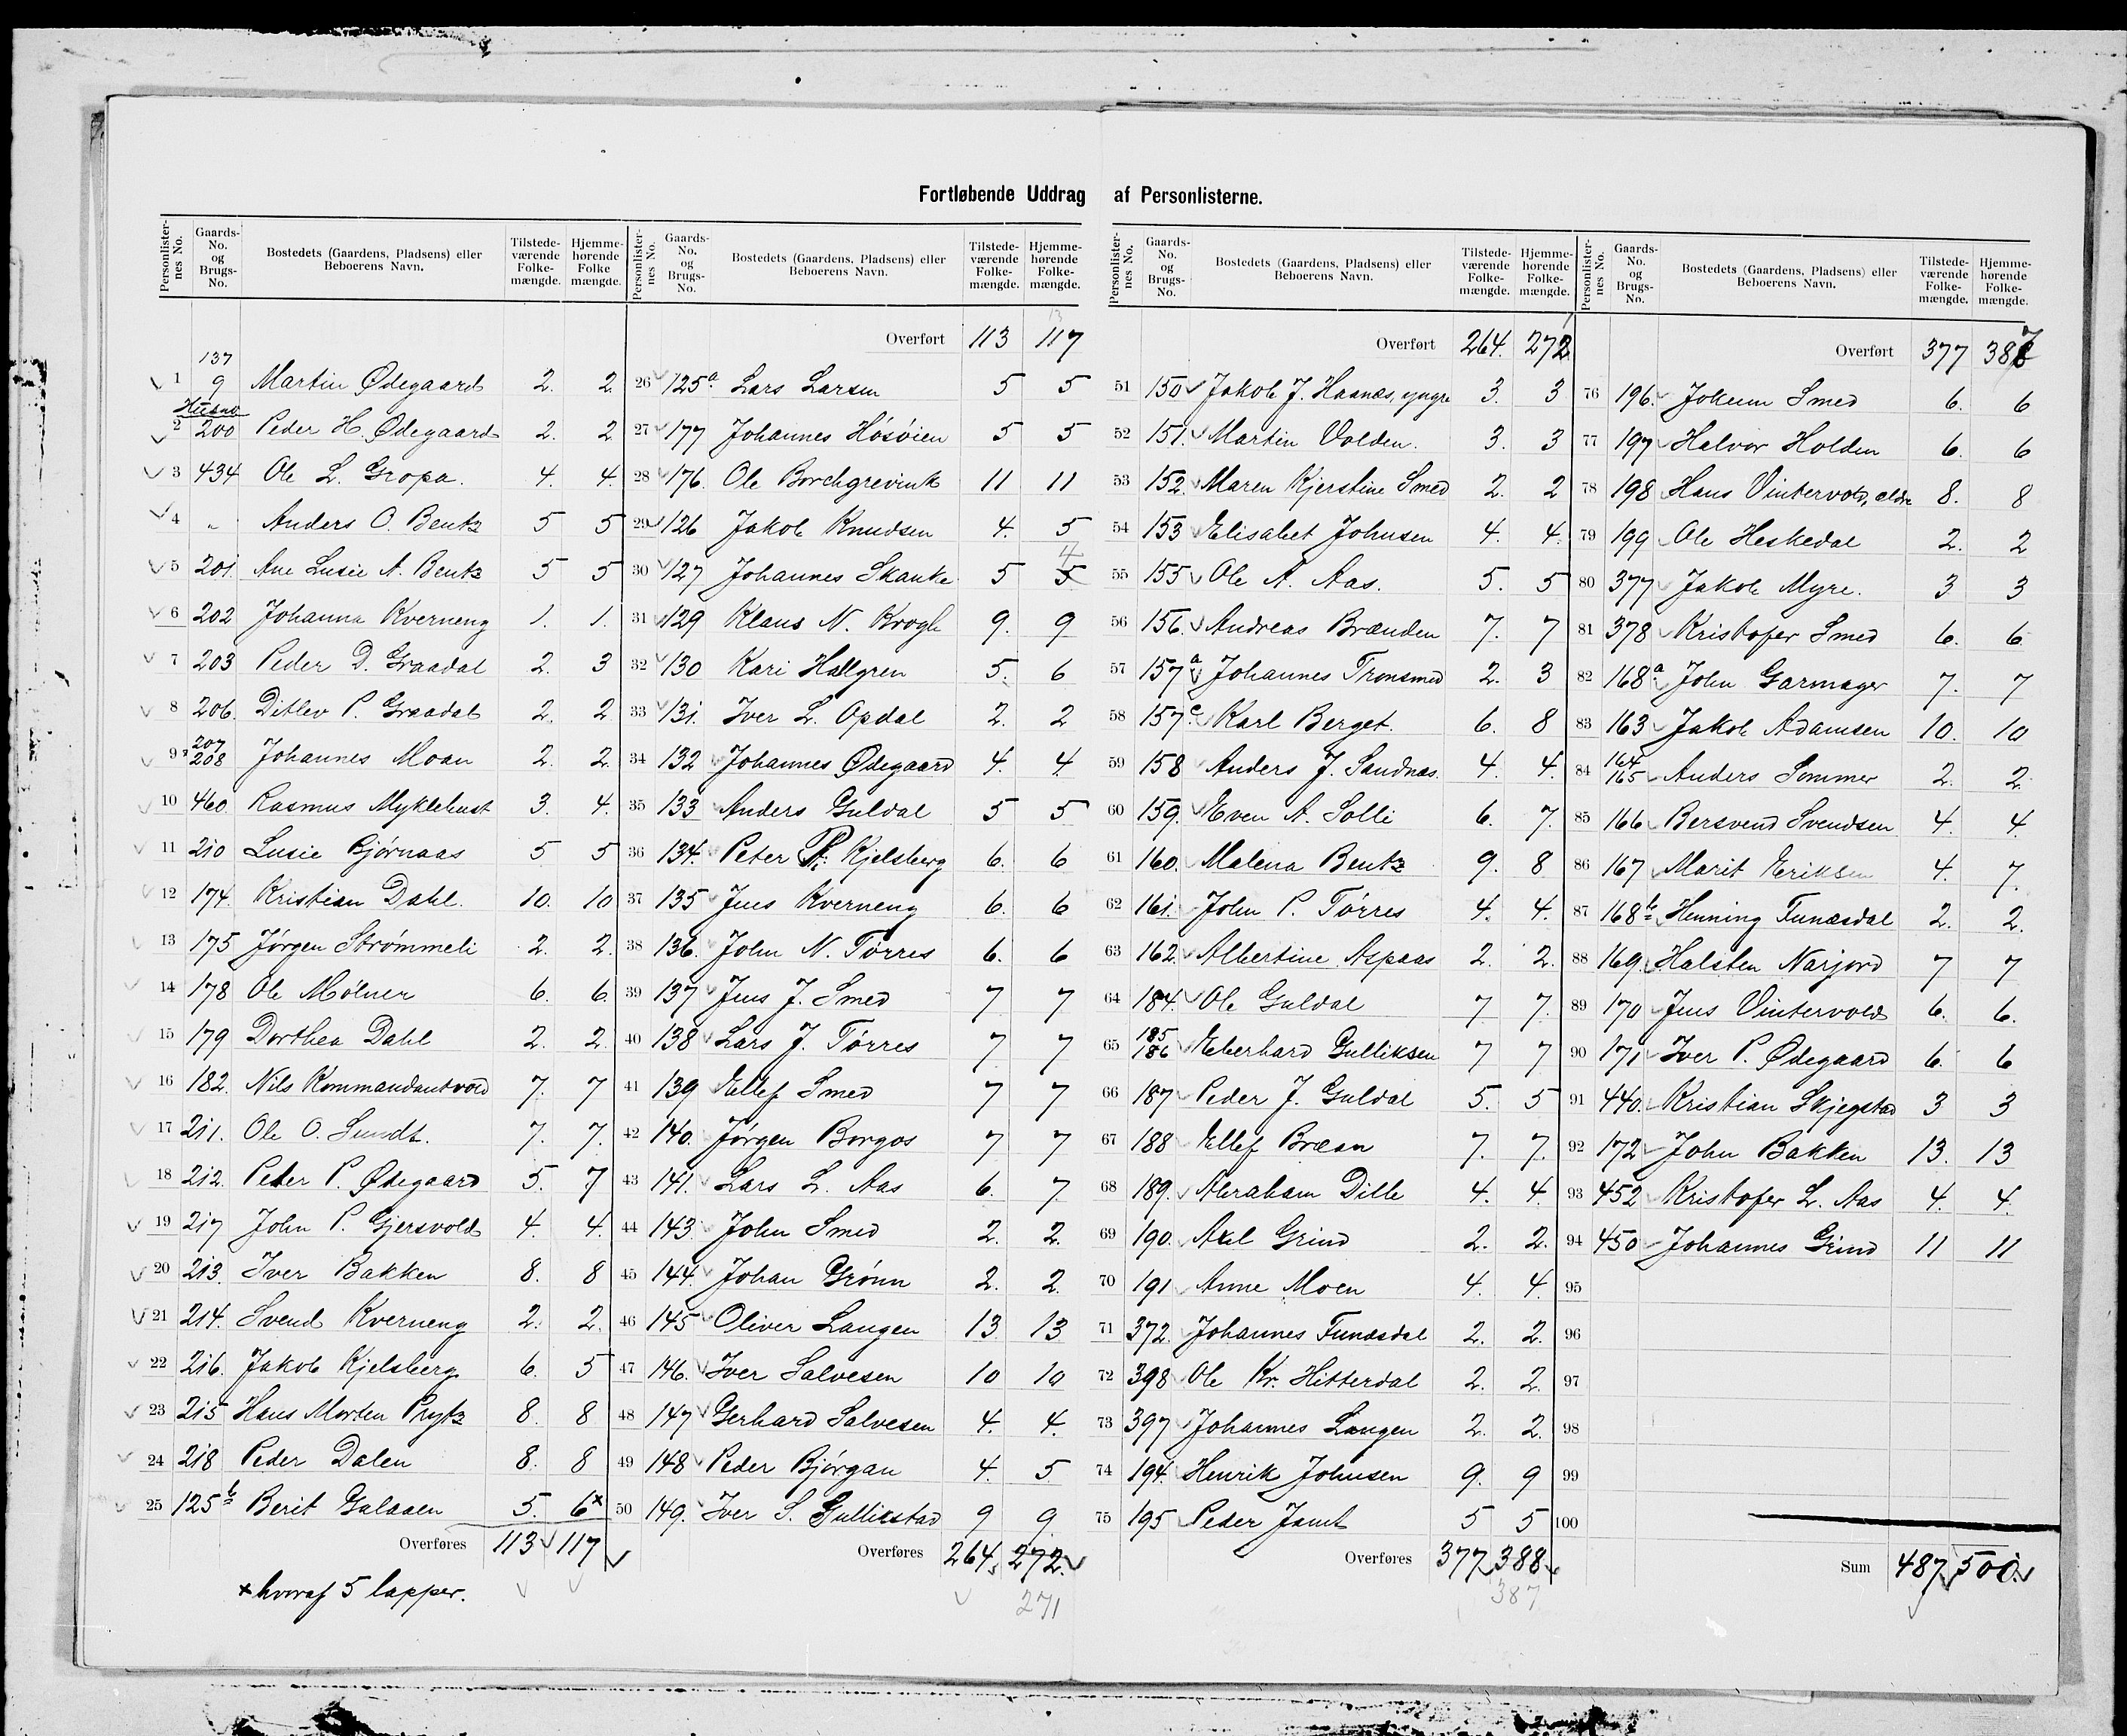 Fortløbende Uddrag af Personlisterne.
Personlisternes No. Gaards-No. og Brugs-No. Bostedets (Gaardens, Pladsens) eller Beboerens Navn. Tilstedeværende Folkemængde. Hjemmehørende Folkemængde.
137
1 9 Martin Ødegaard 2. 2
Husno
2 200 Peder H. Ødegaard 2. 2
3 434 Ole L. Gropa. 4. 4.
4 „ Anders O. Bentz 5 5
5 201. Ane Lusie A. Bentz 5 5
6 202 Johanna Kverneng 1. 1.
7 203 Peder D. Graadal 2. 3
8 206. Ditlev P. Graadal 2. 2
9 207 208 Johannes Moan 2. 2
10 460. Rasmus Myklebust 3. 4.
11 210 Lusie Bjørnaas 5 5
12 174. Kristian Dahl. 10. 10
13 175 Jørgen Strømmeli 2. 2.
14 178 Ole Mølner 6. 6.
15 179 Dorthea Dahl 2. 2.
16 182. Nils Kommandantvold 7. 7
17 211. Ole O. Sundt. 7. 7.
18 212. Peder P. Ødegaard 5. 7
19 217 John P. Gjersvold 4. 4.
20 213. Iver Bakken 8. 8
21 214. Svend Kverneng 2. 2.
22 216. Jakob Kjelsberg 6. 5
23 215 Hans Morten Prytz 8. 8
24 218 Peder Dalen 8. 8
25 125 b Berit Galaaen 5. 6 x
Overføres 113 117
x hvoraf 5 lapper.
Overført 113 117
13
26 125 a. Lars Larsen 5 5
27 177 Johannes Høsøien 5 5
28 176. Ole Borchgrevink 11 11
29 126 Jakob Knudsen 4. 5
4
30 127 Johannes Skanke 5 5
31 129 Klaus N. Krogh 9. 9
32 130 Kari Hallgren 5. 6
33 131. Iver L. Opdal 2. 2
34 132 Johannes Ødegaard 4. 4.
35 133 Anders Guldal 5 5
36 134. Peter R. Kjelsberg 6. 6
37 135 Jens Kverneng 6. 6
38 136. John N. Tørres 6. 6
39 137 Jens J. Smed 7 7
40 138 Lars J. Tørres 7 7
41 139 Ellef Smed 7 7
42 140. Jørgen Borgos 7 7
43 141. Lars L. Aas 6. 7
44 143 John Smed 2. 2.
45 144. Johan Grønn 2. 2.
46 145 Oliver Langen 13. 13
47 146. Iver Salvesen 10 10
48 147 Gerhard Salvesen 4. 4.
49 148 Peder Bjørgan 4. 5
50 149. Iver S. Gullikstad 9 9.
Overføres 264. 272.
271
Overført 264. 272
1
51 150 Jakob J. Haanæs, yngre 3. 3
52 151. Martin Volden. 3. 3
53 152. Maren Kjerstine Smed 2. 2
54 153 Elisabet Johnsen 4. 4.
55 155 Ole A. Aas. 5. 5
56 156. Andreas Brænden 7. 7
57 157 a Johannes Tronsmed 2. 3
58 157 c. Karl Berget. 6. 8
59 158 Anders J. Sandnæs. 4. 4.
60 159. Even A. Solli 6. 7.
61 160. Malena Bentz 9. 8
62 161. John P. Tørres 4. 4.
63 162. Albertine Aspaas 2. 2.
64 184. Ole Guldal 7 7.
65 185 186 Eberhard Gulliksen 7 7
66 187 Peder J. Guldal 5. 5
67 188 Ellef Bræan 7. 7.
68 189. Abraham Dille 4. 4.
69 190. Axel Grind 2. 2.
70 191 Anne Moen 4. 4.
71 372. Johannes Funæsdal 2. 2.
72 398 Ole Kr. Hitterdal 2. 2.
73 397 Johannes Langen 2. 2.
74 194. Henrik Johnsen 9. 9
75 195 Peder Jamt 5 5
Overføres 377 388
387
Overført 377 388
7
76 196. Jokum Smed 6. 6
77 197 Halvor Holden 6. 6
78 198 Hans Vintervold, ældre 8. 8
79 199 Ole Heskedal 2. 2
80 377 Jakob Myre. 3 3
81 378 Kristofer Smed 6. 6
82 168 a. John Garmager 7. 7
83 163 Jakob Adamsen 10. 10
84 164 165 Anders Sommer 2. 2.
85 166 Bersvend Svendsen 4. 4.
86 167 Marit Eriksen 4. 7.
87 168 b Henning Funæsdal 2. 2.
88 169. Halsten Narjord 7 7
89 170 Jens Vintervold 6. 6.
90 171 Iver P. Ødegaard 6. 6
91 440. Kristian Skjegstad 3 3
92 172 John Bakken 13. 13
93 452 Kristofer L. Aas 4. 4.
94 450 Johannes Grind 11 11
95
96
97
98
99
100
Sum 487 500.